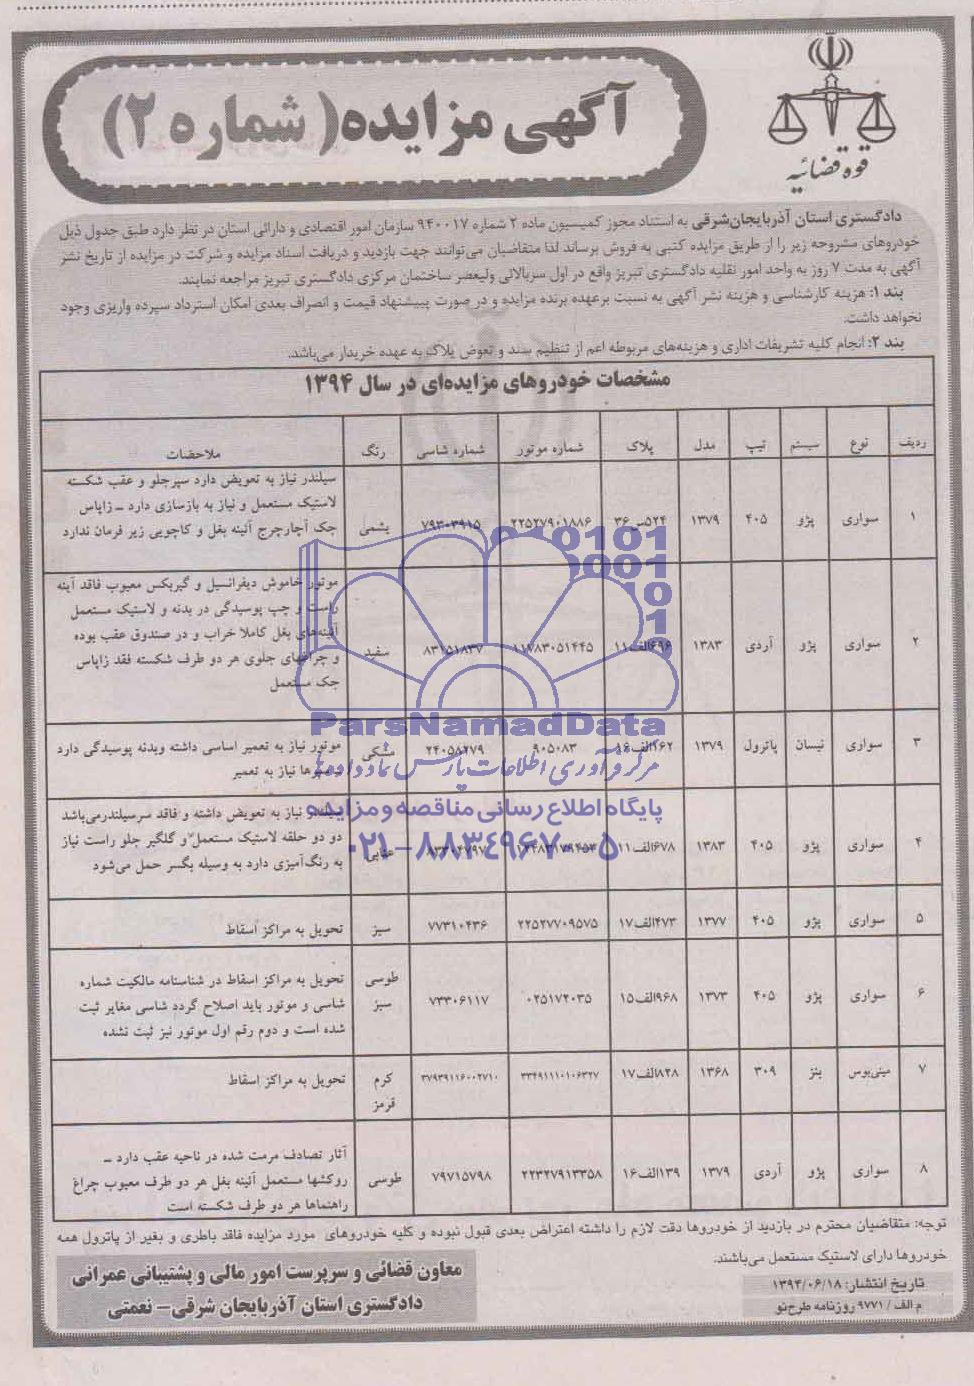 قوه قضائیه
آگهی مزایده( شماره ۲)
دادگستری استان آذربایجان‌شرقی به استناد مجوز کمیسیون ماده ۲ شماره ۹۴۰۰۱۷ سازمان امور اقتصادی و دارائی استان در نظر دارد طبق جدول ذیل
خودروهای مشروحه زیر را از طریق مزایده کتبی به فروش برساند لذا متقاضیان می‌توانند جهت بازدید و دریافت اسناد مزایده و شرکت در مزایده از تاریخ نشر
آگهی به مدت ۷ روز به واحد امور نقلیه دادگستری تبریز واقع در اول سربالائی ولیعصر ساختمان مرکزی دادگستری تبریز مراجعه نمایند.
بند ۱: هزینه کارشناسی و هزینه نشر آگهی به نسبت برعهده برنده مزایده و در صورت پیشنهاد قیمت و انصراف بعدی امکان استرداد سپرده واریزی وجود
نخواهد داشت.
بند ۲: انجام کلیه تشریفات اداری و هزینه‌های مربوطه اعم از تنظیم سند و تعوض پلاک به عهده خریدار می‌باشد.
مشخصات خودروهای مزایده‌ای در سال ۱۳۹۴
ردیف نوع سیستم تیپ مدل پلاک شماره موتور شماره شاسی رنگ ملاحضات
۱ سواری پژو ۴۰۵ ۱۳۷۹ ۵۲۴س۳۶ ۲۲۵۲۷۹۰۱۸۸۶ ۷۹۳۰۳۹۱۵ یشمی
سیلندر نیاز به تعویض دارد سپرجلو و عقب شکسته
لاستیک مستعمل و نیاز به بازسازی دارد ـ زاپاس
جک آچارچرخ آئینه بغل و کاچویی زیر فرمان ندارد
۲ سواری پژو آردی ۱۳۸۳ ۶۹۶الف۱۱ ۱۱۷۸۳۰۵۱۴۴۵ ۸۳۱۵۱۸۳۷ سفید
موتور خاموش دیفرانسیل و گیربکس معیوب فاقد آینه
راست و چپ پوسیدگی در بدنه و لاستیک مستعمل
آئینه‌های بغل کاملا خراب و در صندوق عقب بوده
و چراغهای جلوی هر دو طرف شکسته فقد زاپاس
جک مستعمل
۳ سواری نیسان پاترول ۱۳۷۹ ۹۶۲الف۱۶ ۹۰۵۰۸۳ ۲۴۰۵۸۲۷۹ مشکی
موتور نیاز به تعمیر اساسی داشته وبدنه پوسیدگی دارد
و سپرها نیاز به تعمیر
۴ سواری پژو ۴۰۵ ۱۳۸۳ ۶۷۸الف۱۱ ۱۲۴۸۳۱۷۹۴۵۳ ۸۳۳۰۴۷۹۷ عنابی
سیلندر نیاز به تعویض داشته و فاقد سرسیلندرمی‌باشد
دو دو حلقه لاستیک مستعمل و گلگیر جلو راست نیاز
به رنگ‌آمیزی دارد به وسیله بگسر حمل می‌شود
۵ سواری پژو ۴۰۵ ۱۳۷۷ ۴۷۳الف۱۷ ۲۲۵۲۷۷۰۹۵۷۵ ۷۷۳۱۰۴۳۶ سبز تحویل به مراکز اسقاط
۶ سواری پژو ۴۰۵ ۱۳۷۳ ۹۶۸الف۱۵ ۰۲۵۱۷۲۰۳۵ ۷۳۳۰۶۱۱۷ طوسی سبز
تحویل به مراکز اسقاط در شناسنامه مالکیت شماره
شاسی و موتور باید اصلاح گردد شاسی مغایر ثبت
شده است و دوم رقم اول موتور نیز ثبت نشده
۷ مینی‌بوس بنز ۳۰۹ ۱۳۶۸ ۸۲۸الف۱۷ ۳۳۴۹۱۱۱۰۱۰۶۳۲۷ ۳۷۹۳۹۱۱۶۰۰۲۷۱۰ کرم قرمز تحویل به مراکز اسقاط
۸ سواری پژو آردی ۱۳۷۹ ۱۳۹الف۱۶ ۲۲۳۲۷۹۱۳۳۵۸ ۷۹۷۱۵۷۹۸ طوسی
آثار تصادف مرمت شده در ناحیه عقب دارد ـ
روکشها مستعمل آئینه بغل هر دو طرف معیوب چراغ
راهنماها هر دو طرف شکسته است
توجه: متقاضیان محترم در بازدید از خودروها دقت لازم را داشته اعتراض بعدی قبول نبوده و کلیه خودروهای مورد مزایده فاقد باطری و بغیر از پاترول همه
خودروها دارای لاستیک مستعمل می‌باشند.
تاریخ انتشار: ۱۳۹۴/۰۶/۱۸
م الف / ۹۷۷۱ روزنامه طرح‌نو
معاون قضائی و سرپرست امور مالی و پشتیبانی عمرانی
دادگستری استان آذربایجان شرقی- نعمتی
ParsNamadData
مرکز فرآوری اطلاعات پارس نماد داده‌ها
پایگاه اطلاع رسانی مناقصه و مزایده
۰۲۱-۸۸۳۴۹۶۷۰-۵